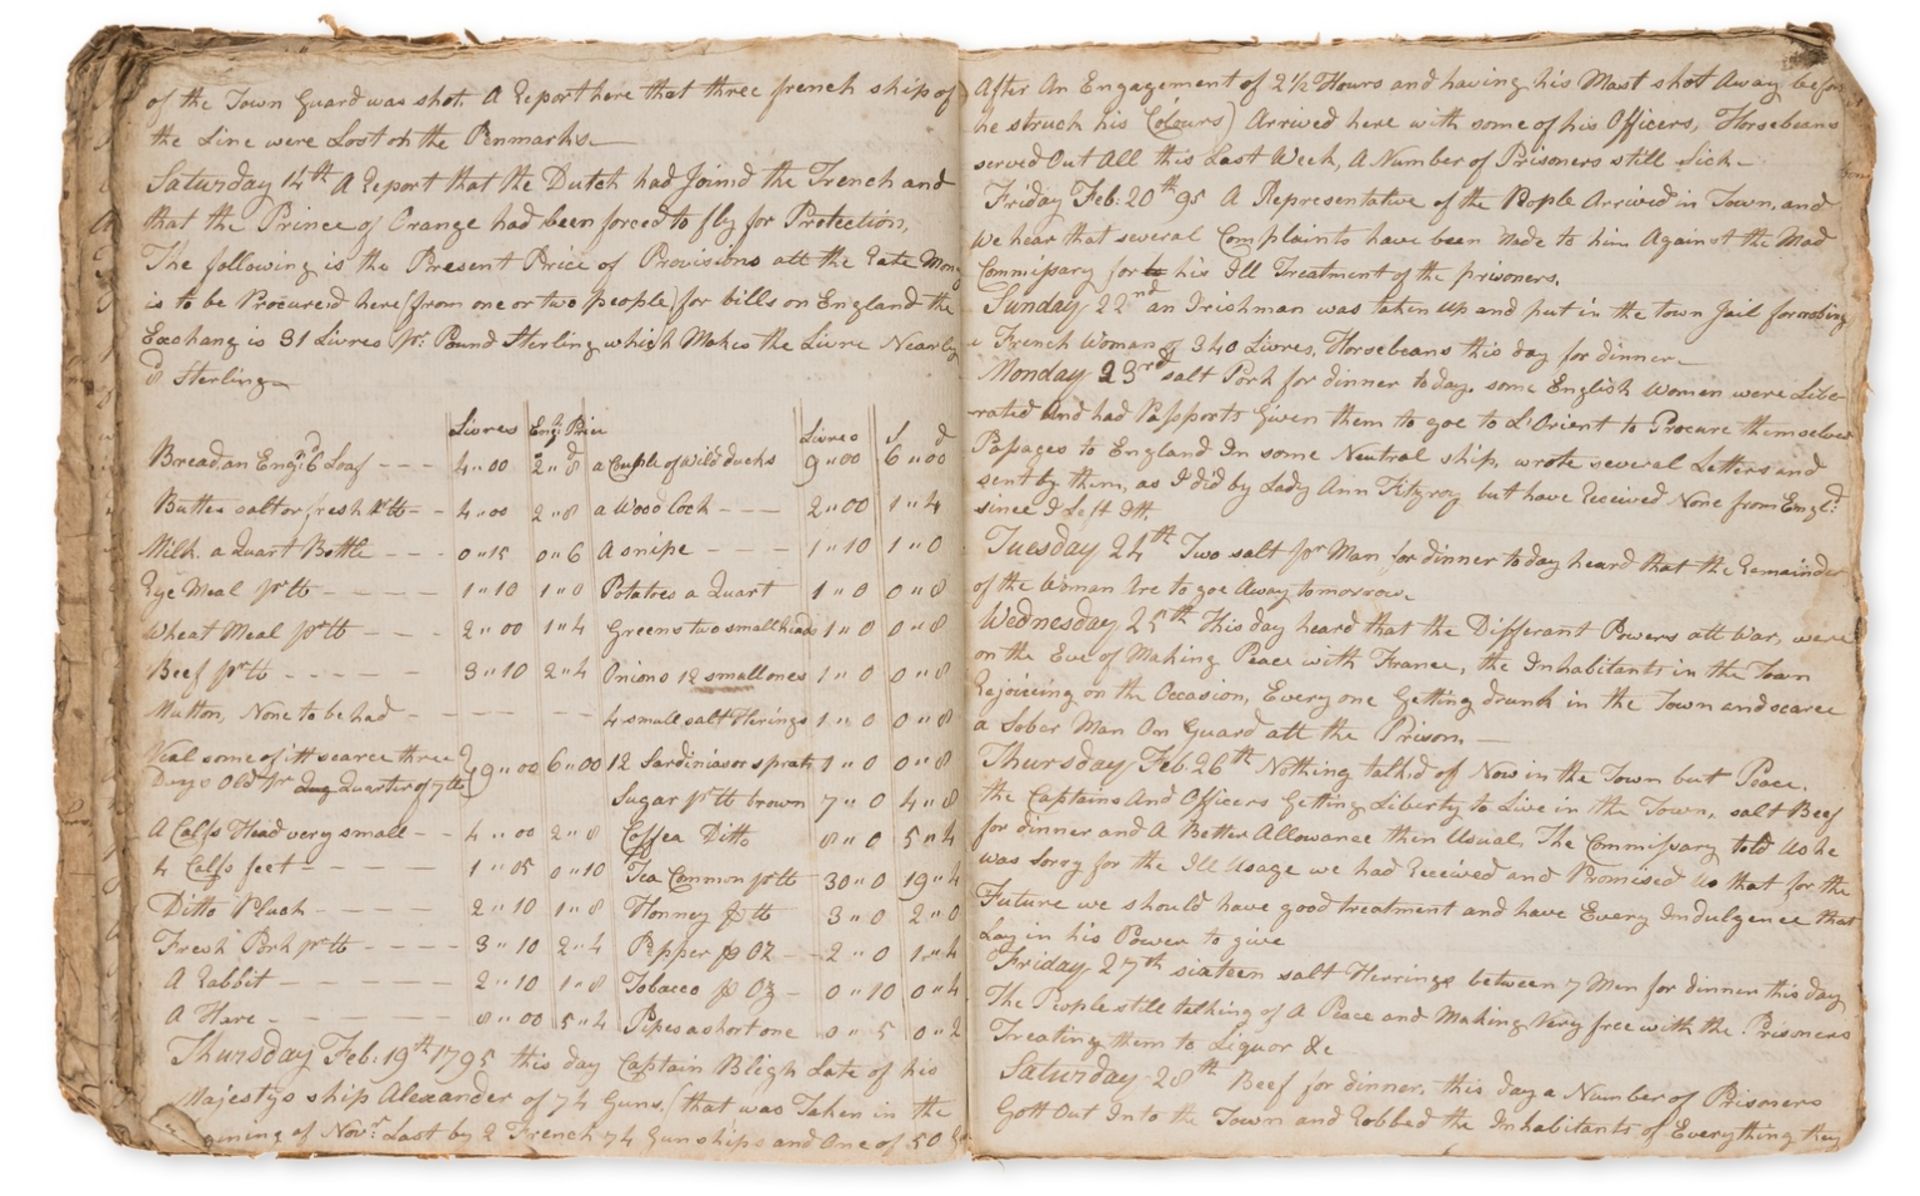 of the Town Guard was shot. A Report here that three french ship of
the Line were Lost on the Penmarks
Saturday 14th A Report that the Dutch had Joind the French and
that the Prince of Orange had been forced to fly for Protection,
The following is the Present Price of Provisions att the Rate Mony
is to be Procure'd here (from one or two people) for bills on England the
Exchang is 31 Livres pr: Pound Sterling which Makes the Livre Nearly
8d Sterling
Livres Engh Price Livres S d
Bread, an Engh: 6d Loaf - - - 4"00 2"8 a Couple of Wild ducks 9"00 6"00
Butter salt or fresh pr lb - - 4"00 2"8 a Wood Cock - - - 2"00 1"4
Milk. a Quart Bottle - - - 0"15 0"6 A snipe - - - 1"10 1"0
Rye Meal pr lb - - - - - 1"10 1"0 Potatoes a Quart 1"0 0"8
Wheat Meal pr lb - - - 2"00 1"4 Greens two small heads 1"0 0"8
Beef pr lb - - - - - 3"10 2"4 Onions 12 small ones 1"0 0"8
Mutton, None to be had - - - - - - 4 small salt Herings 1"0 0"8
Veal some of itt scarce three } 9"00 6"00 12 Sardinias or sprats 1"0 0"8
Days Old pr Quarter of 7 lb Sugar pr lb brown 7"0 4"8
A Calfs Head very small - - 4"00 2"8 Coffea Ditto 8"0 5"4
4 Calfs feet - - - - - 1"05 0"10 Tea Common pr lb 30"0 19"4
Ditto Pluck - - - - 2"10 1"8 Honney p lb 3"0 2"0
Fresh Pork pr lb - - - - 3"10 2"4 Pepper p OZ - - 2"0 1"4
A Rabbit - - - - - 2"10 1"8 Tobacco p Oz - 0"10 0"4
A Hare - - - - - 8"00 5"4 Pipes a short one 0"5 0"2
Thursday Feb: 19th 1795 this day Captain Bligh Late of his
Majestys ship Alexander of 74 Guns. (that was Taken in the
of Novr: Last by 2 French 74 Gun ships and One of 50
After An Engagement of 2 1/2 Hours and having his Mast shot Away before
he struck his Colours) Arrived here with some of his Officers, Horsebeans
served Out All this Last Week, A Number of Prisoners still Sick -
Friday Feb: 20th 95 A Representative of the People Arrived in Town, and
We hear that several Complaints have been Made to him Against the Mad
Commissary for his Ill Treatment of the prisoners.
Sunday 22nd an Irishman was taken up and put in the town Jail for robing
a French Woman of 340 Livres, Horsebeans this day for dinner -
Monday 23rd salt Pork for dinner today. some English Women were Libe-
-rated And had Passports Given them to goe to L'Orient to Procure themselves
Passages to England In some Neutral ship, wrote several Letters and
sent by them, as I did by Lady Ann Fitzroy but have Received None from Engld:
since I Left Itt.
Tuesday 24th Two salt pr Man for dinner to day heard that the Remainder
of the Woman Are to goe Away tomorrow.
Wednesday 25th This day heard that the Differant Powers att War, were
on the Eve of Making Peace with France, the Inhabitants in the Town
Rejoiceing on the Occasion, Every one Getting drunk in the Town and scarce
a Sober Man On Guard att the Prison. -
Thursday Feb. 26th Nothing talkd of Now in the Town but Peace.
the Captains And Officers Getting Liberty to Live in the Town, salt Beef
for dinner and A Better Allowance then Usual, The Commissary told Us he
was Sorry for the Ill Usage we had Received and Promised Us that for the
Future we should have good treatment and have Every Indulgence that
Lay in his Power to give
Friday 27th sixteen salt Herrings between 7 Men for dinner this day
The People still talking of A Peace and Making Very free with the Prisoners
Treating them to Liquor &c
Saturday 28th Beef for dinner, this day a Number of Prisoners
Gott Out Into the Town and Robbed the Inhabitants of Everything they